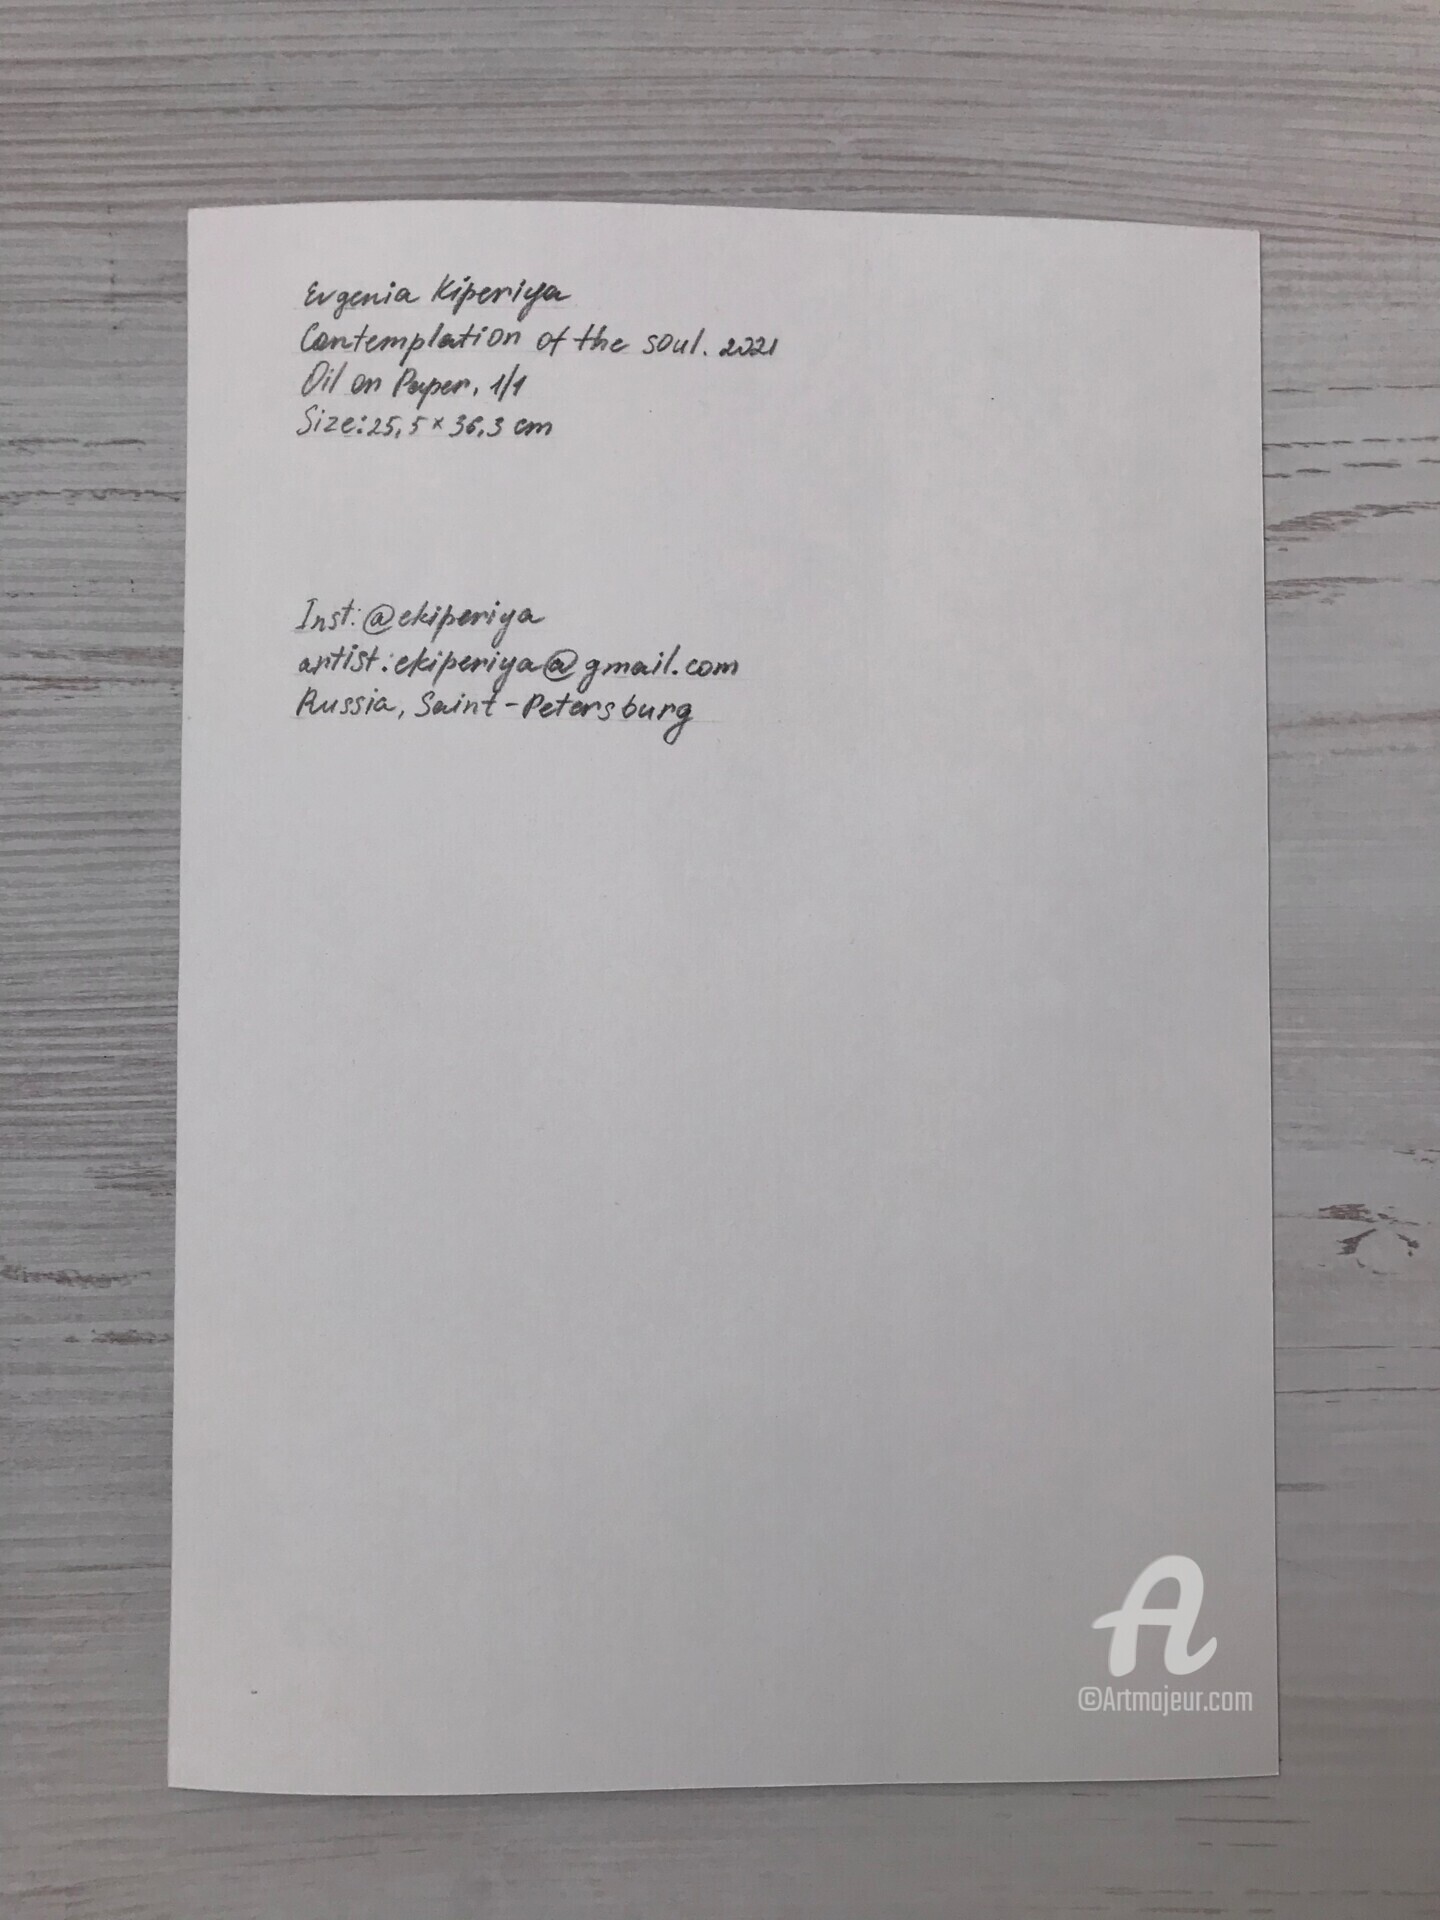 Evgenia Kiperiya
Contemplation of the soul. 2021
Oil on Paper, 1/1
Size: 25,5 × 36,3 cm
Inst: @ekiperiya
artist.ekiperiya@gmail.com
Russia, Saint-Petersburg
A
©Artmajeur.com